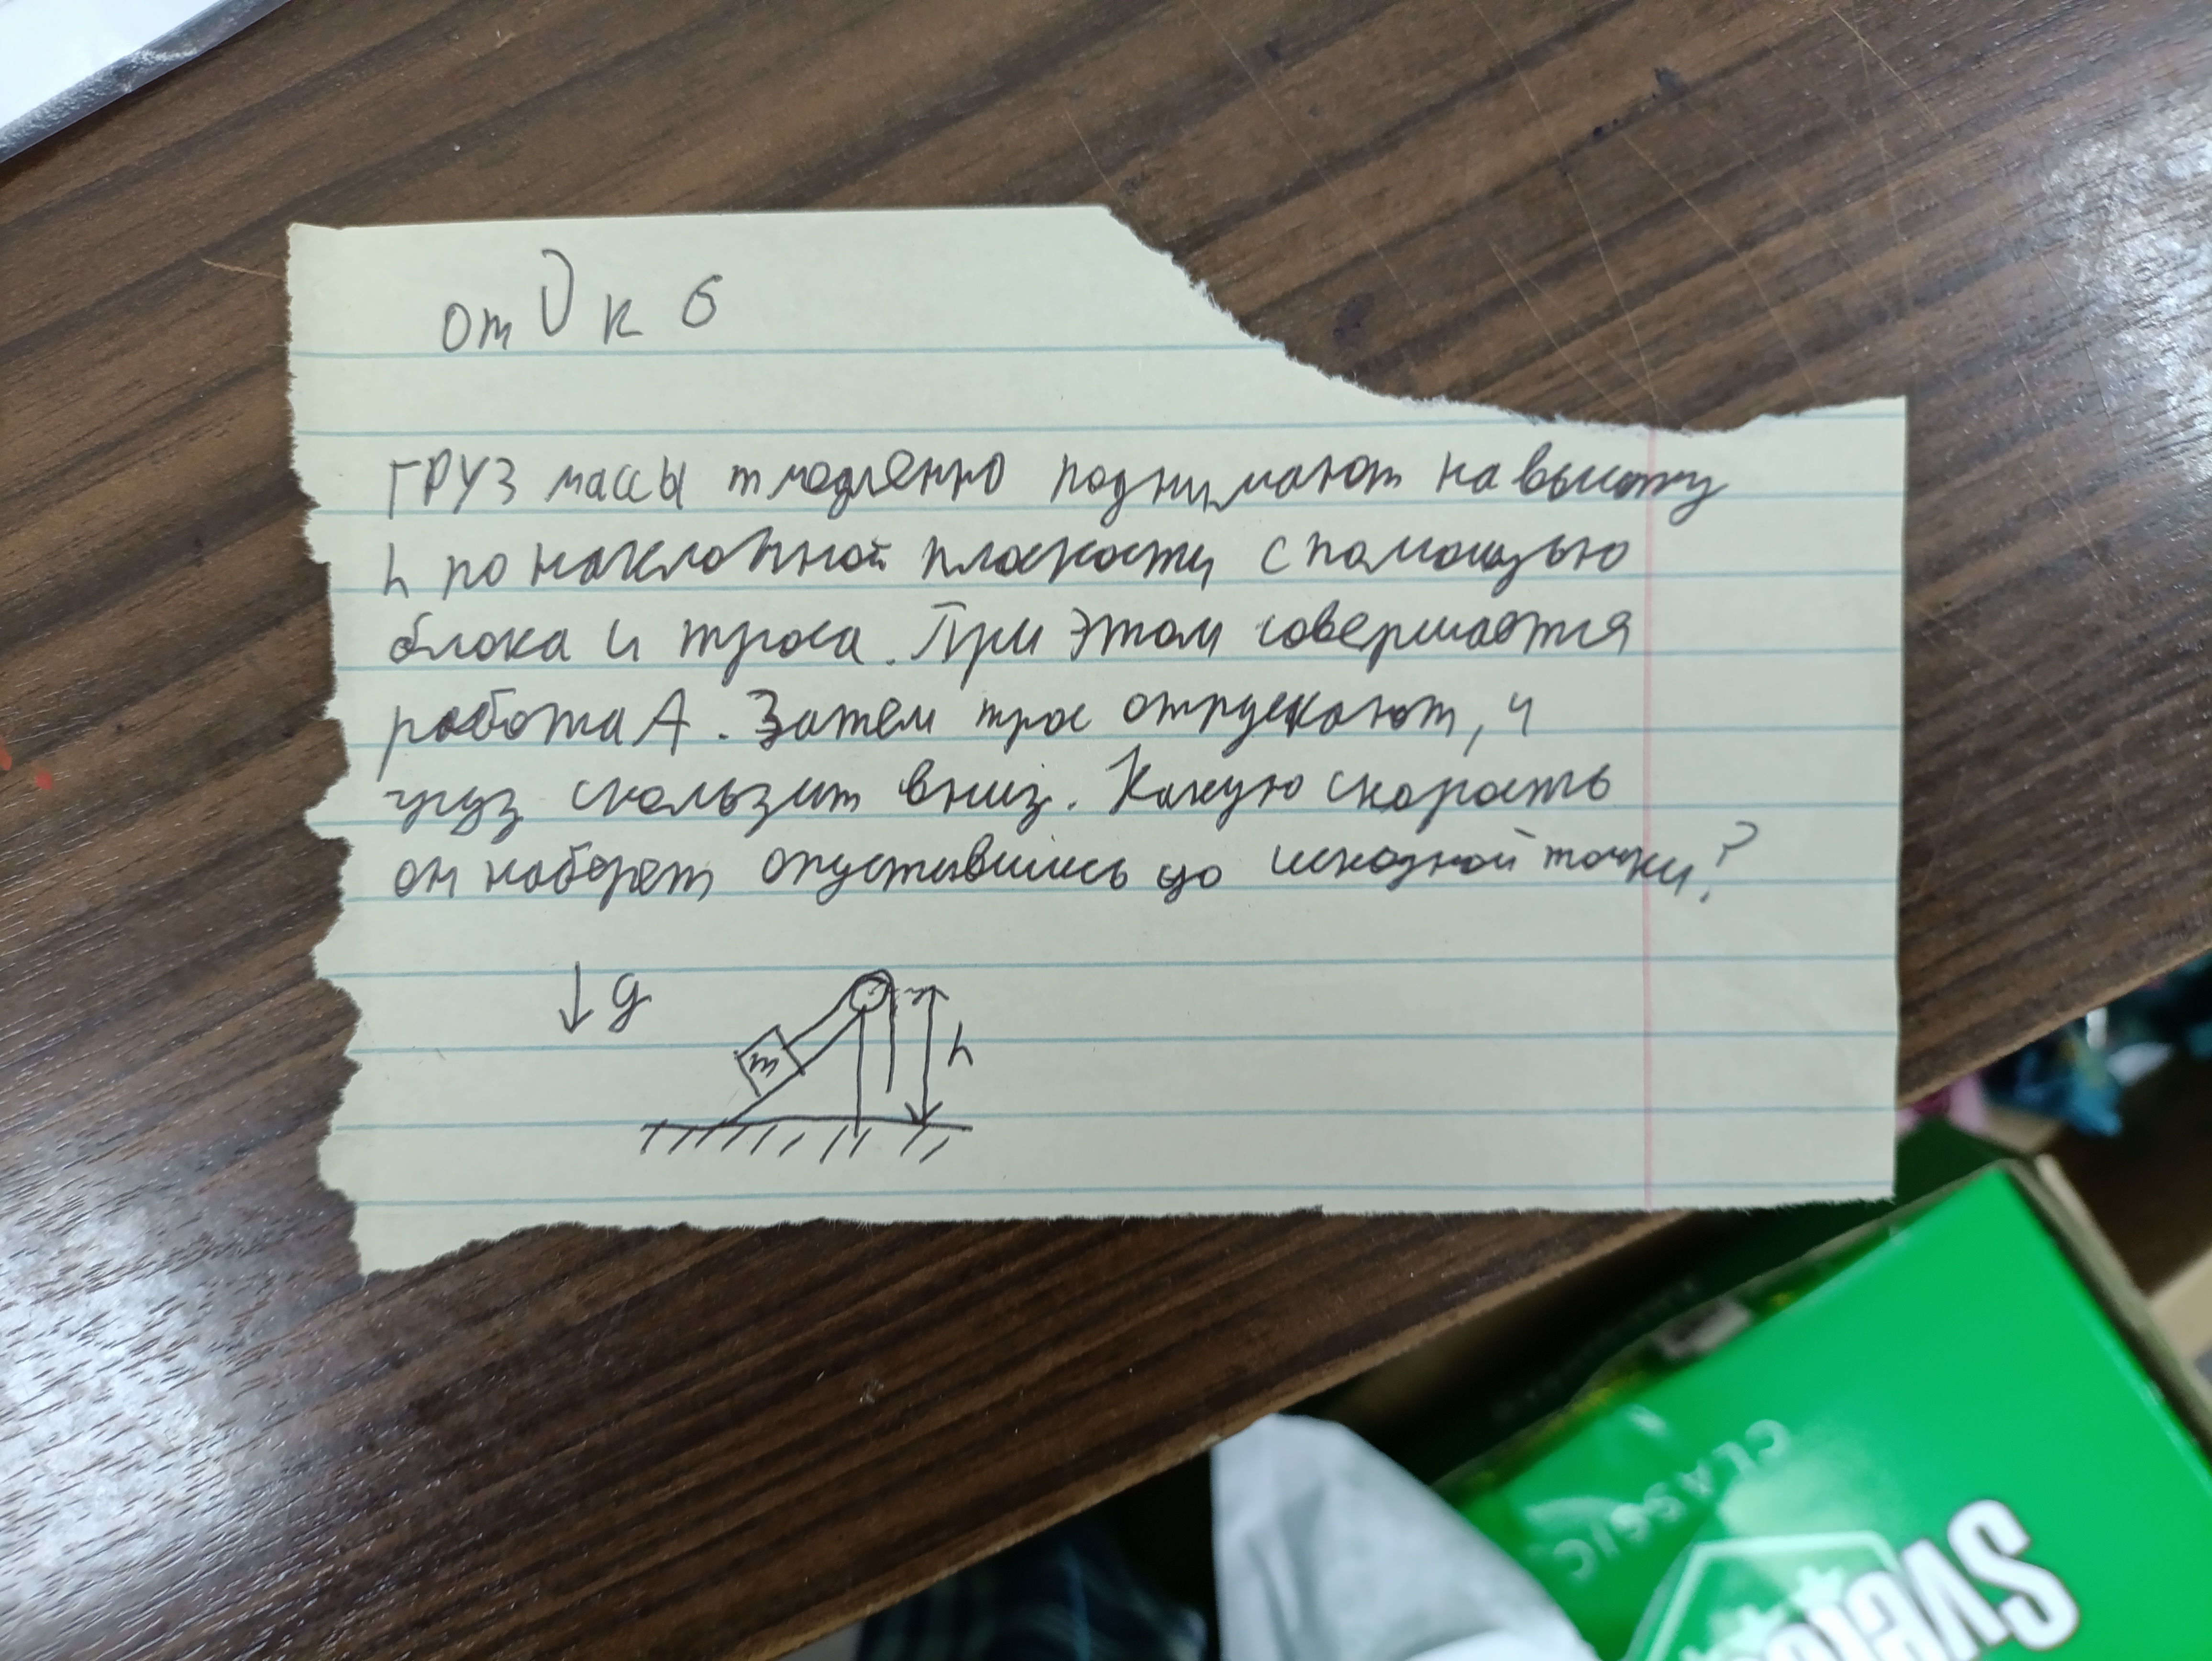 от V к 6
ГРУЗ массы m медленно поднимают на высоту
h по наклонной плоскости с помощью
блока и троса. При этом совершается
работа А. Затем трос отпускают, и
груз скользит вниз. Какую скорость
он наберет опустившись до исходной точки?
g
m
h
CLASSIC